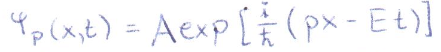 φ_p(x,t) = A exp [ i/ħ (px - Et) ]